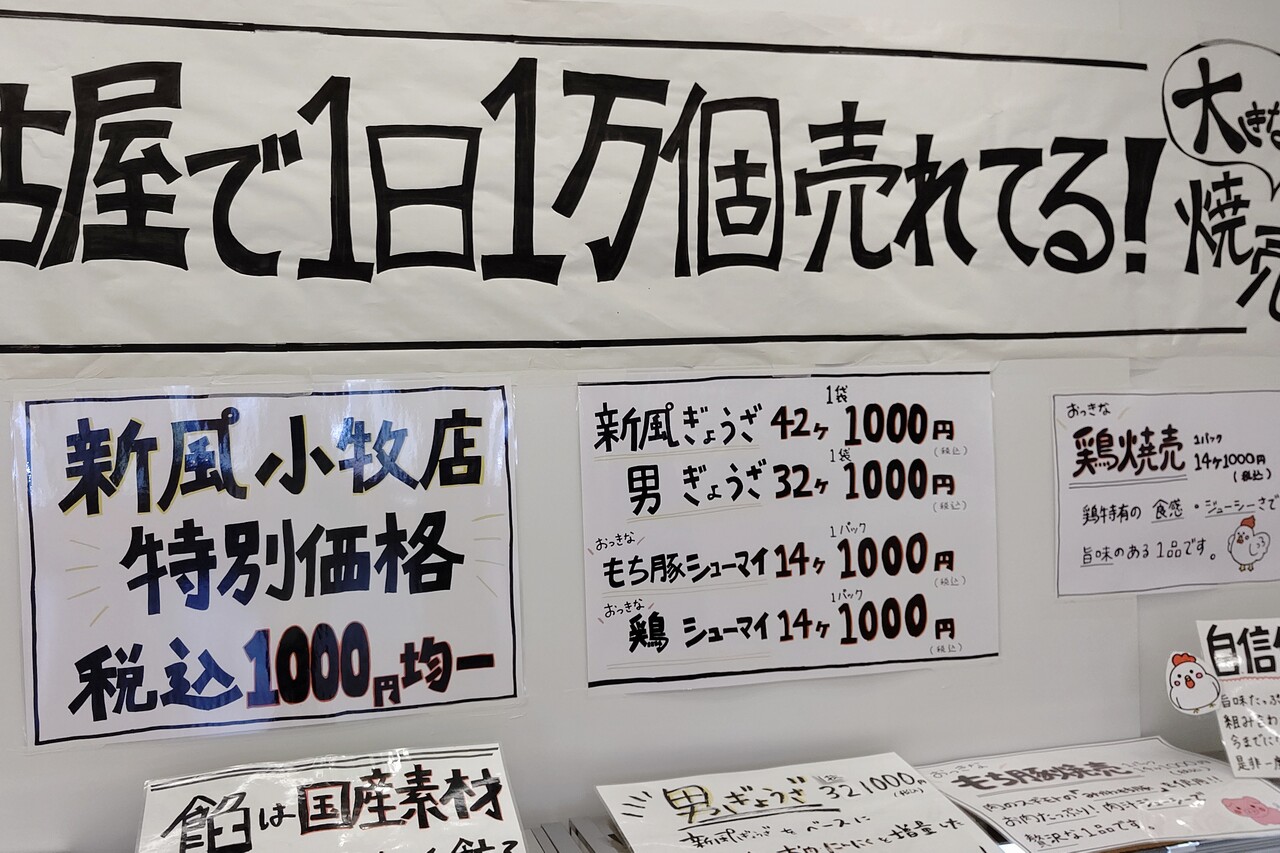 古屋で1日1万個売れてる!
大きな
焼売
新風小牧店
特別価格
税込1000円均一
新風ぎょうざ 42ヶ 1袋 1000円 (税込)
男ぎょうざ 32ヶ 1袋 1000円 (税込)
おっきな
もち豚シューマイ 14ヶ 1パック 1000円 (税込)
おっきな
鶏シューマイ 14ヶ 1パック 1000円 (税込)
おっきな
鶏焼売 1パック 14ヶ1000円 (税込)
鶏特有の 食感・ジューシーさで
旨味のある1品です。
自信
旨味たっぷ
組み合わ
今までに
是非一度
餡は国産素材
男ぎょうざ 32 1000円 (税込)
新風ぎょうざをベースに
にんにくを増量した
おっきな
もち豚焼売
お肉たっぷり!肉汁ジューシーで
贅沢な1品です。